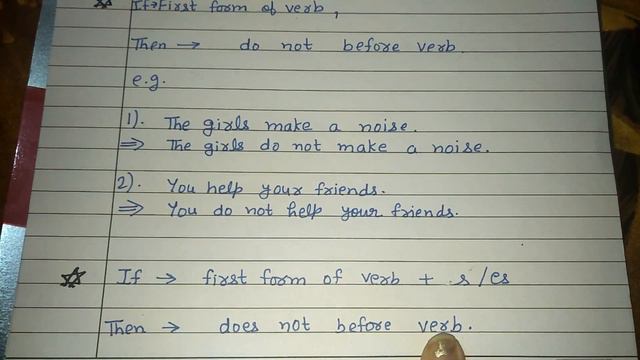 ☆ If→First form of verb,
Then → do not before verb.
e.g.
1). The girls make a noise.
⇒ The girls do not make a noise.
2). You help your friends.
⇒ You do not help your friends.
☆ If → first form of verb + s/es
Then → does not before verb.